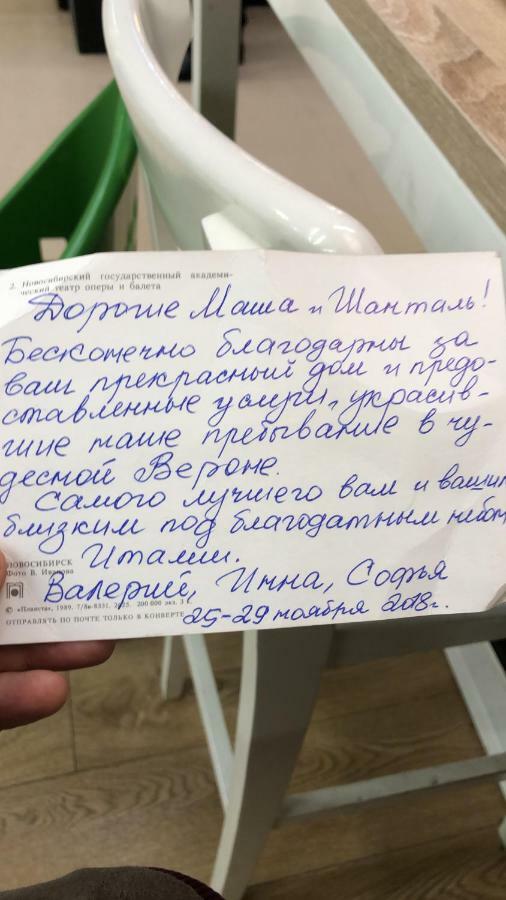 2. Новосибирский государственный академи-
ческий театр оперы и балета
Дорогие Маша и Шанталь!
Бесконечно благодарны за
ваш прекрасный дом и предо-
ставленные услуги, украсив-
шие наше пребывание в чу-
десной Вероне.
Самого лучшего вам и вашим
близким под благодатным небом
Италии.
НОВОСИБИРСК
Фото В. Иванова
Валерий, Инна, Софья
© «Планета», 1989. 7/8в-8331. 200 000 экз. 3 к.
25-29 ноября 2018г.
ОТПРАВЛЯТЬ ПО ПОЧТЕ ТОЛЬКО В КОНВЕРТЕ